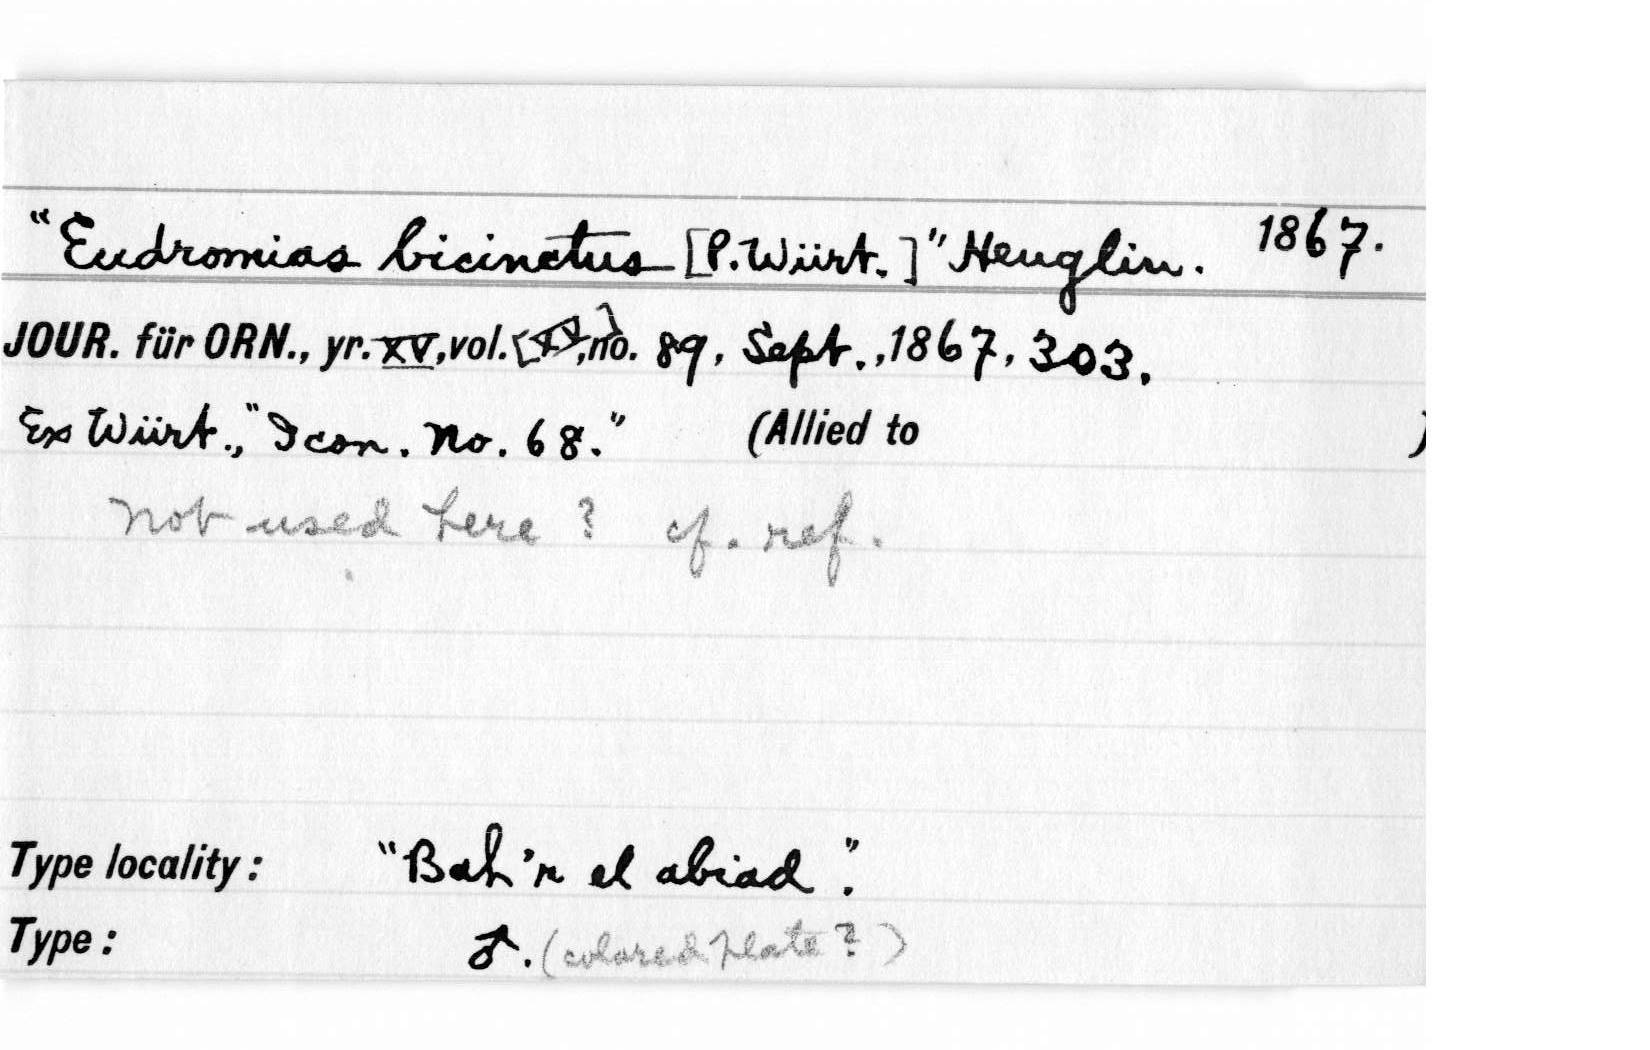 "Eudromias bicinctus [P. Würt.]" Heuglin. 1867.
JOUR. für ORN., yr. XV, vol. [XV], no. 89, Sept., 1867, 303.
Ex Würt., "Icon. No. 68." (Allied to )
Not used here? cf. ref.
Type locality: "Bah'r el abiad."
Type: ♂. (colored plate?)